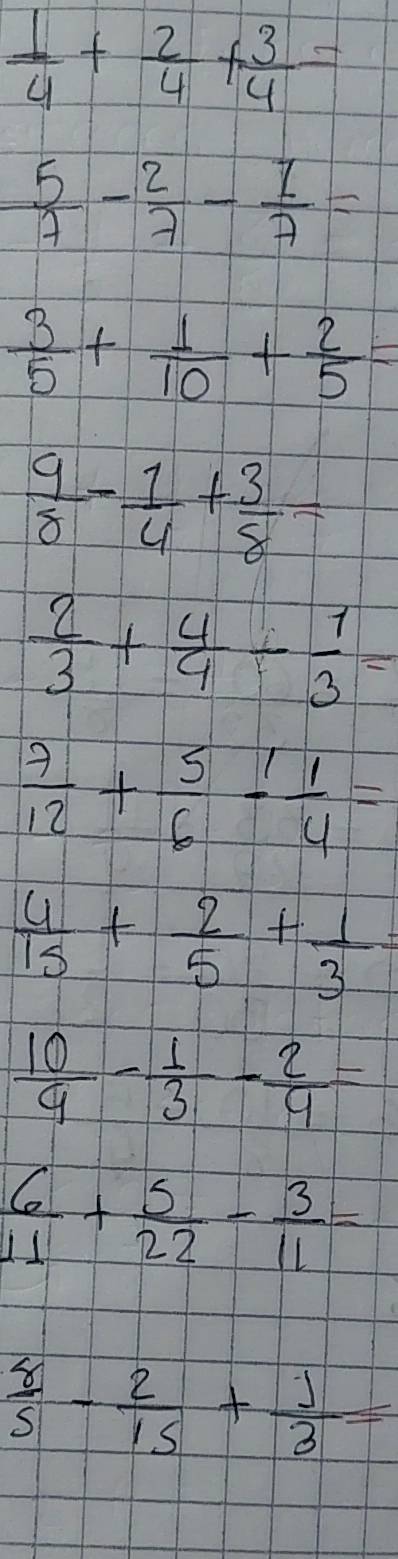 1/4 + 2/4 + 3/4 =
5/7 - 2/7 - 1/7 =
3/5 + 1/10 + 2/5 =
9/8 - 1/4 + 3/8 =
2/3 + 4/9 - 1/3 =
7/12 + 5/6 - 1/4 =
4/15 + 2/5 + 1/3 =
10/9 - 1/3 - 2/9 =
6/11 + 5/22 - 3/11 =
8/5 - 2/15 + 1/3 =